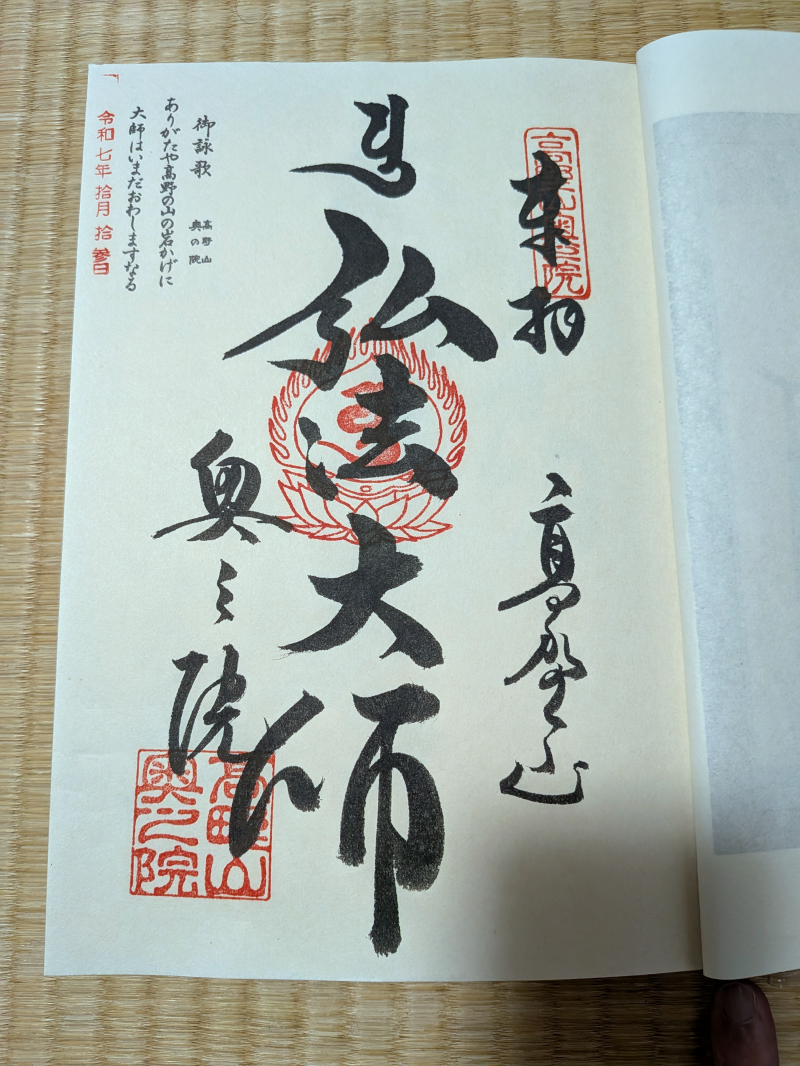 奉拝
高野山奥之院
高野山
弘法大師
奥之院
高野山
奥之院
御詠歌 高野山
奥の院
ありがたや高野の山の岩かげに
大師はいまだおわしますなる
令和七年拾月拾参日